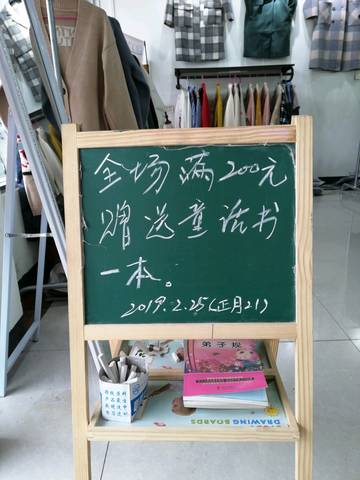 全场满200元
赠送童话书
一本。
2019.2.25(正月21)
弟子规
DRAWING BOARDS